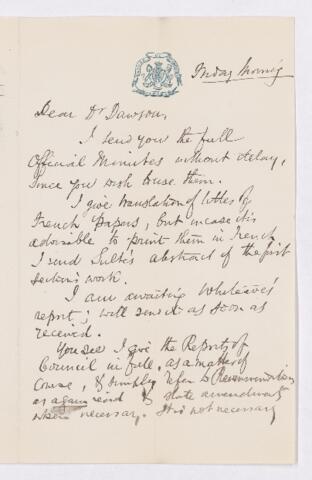 Friday Morning
Dear Dr Dawson,
I send you the full
Official Minutes without delay,
since you wish to use them.
I give translation of titles of
French Papers, but in case it is
advisable to print them in French
I send Sulte's abstract of the first
section's work.
I am awaiting Whiteaves'
report; will send it as soon as
received.
You see I give the Reports of
Council in full, as a matter of
course, & simply refer to Recommendations
as again read & state amendments
when necessary. It is not necessary